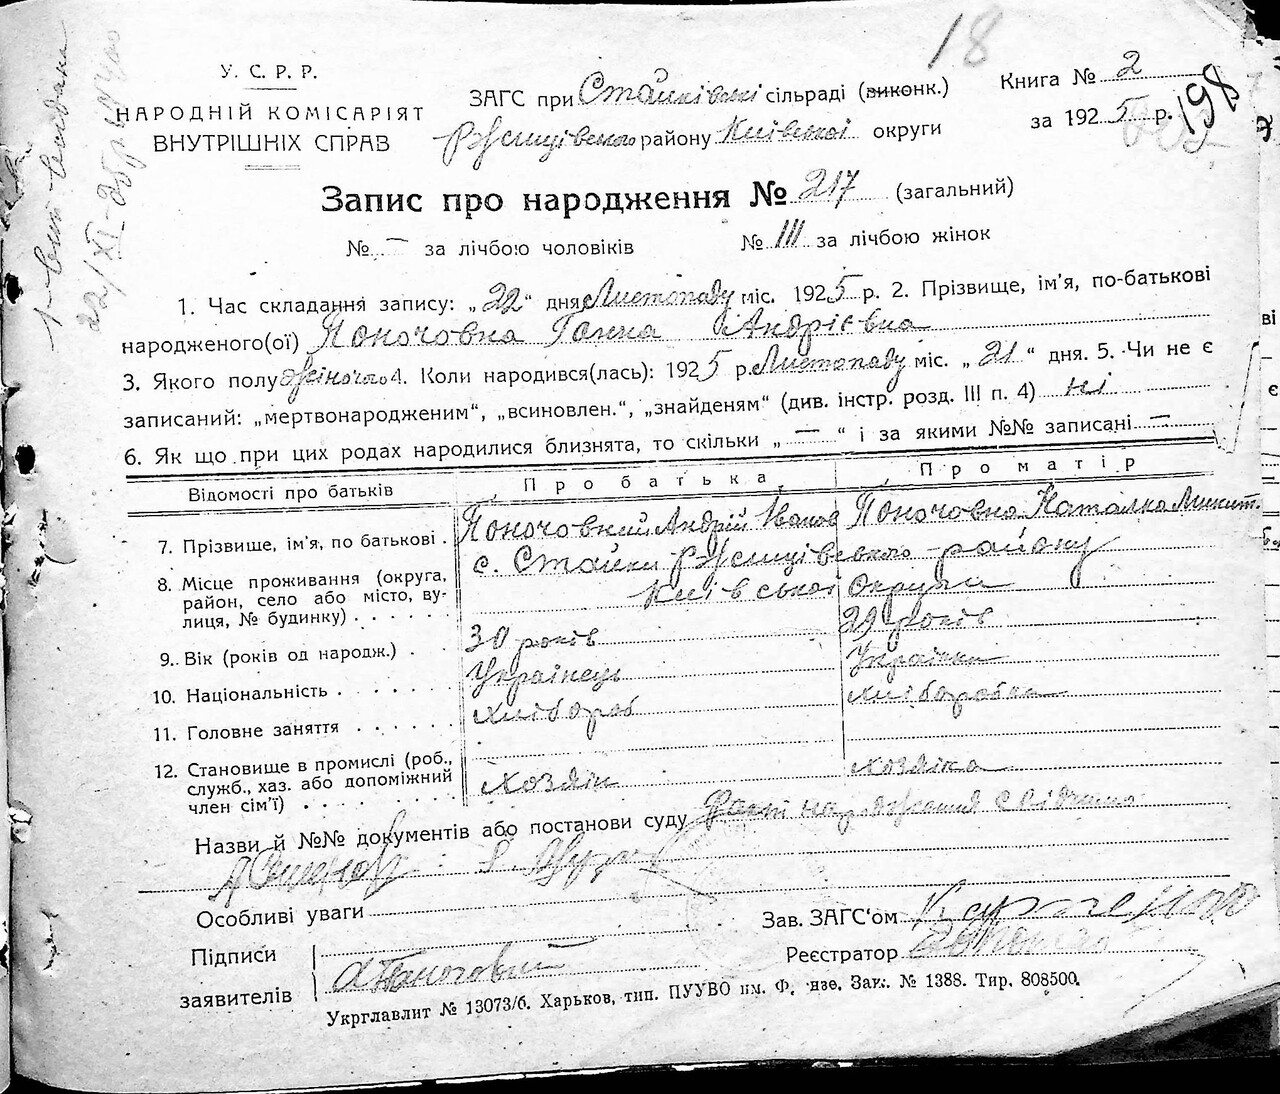 18
У. С. Р. Р.
НАРОДНІЙ КОМІСАРІЯТ
ВНУТРІШНІХ СПРАВ
ЗАГС при Стайківські сільраді (виконк.)
Ржищівського району Київської округи
Книга № 2
за 1925 р. 198
Запис про народження № 217 (загальний)
№ — за лічбою чоловіків № 111 за лічбою жінок
1. Час складання запису: „22“ дня Листопаду міс. 1925 р. 2. Прізвище, ім'я, по-батькові
народженого(ої) Поночовна Ганна Андрієвна
3. Якого полу жіночого 4. Коли народився(лась): 1925 р. Листопаду міс. „21“ дня. 5. Чи не є
записаний: „мертвонародженим“, „всиновлен.“, „знайденям“ (див. інстр. розд. III п. 4) ні
6. Як що при цих родах народилися близнята, то скільки „—“ і за якими №№ записані —
Відомості про батьків Про батька Про матір
7. Прізвище, ім'я, по батькові . Поночовний Андрій Іванов Поночовна Наталка Микит.
8. Місце проживання (округа, район, село або місто, вулиця, № будинку) . . . . . с. Стайки Ржищівського району
Київської округи
9. Вік (років од народж.) . . 30 років 29 років
10. Національність . . . . . . . Українець Українка
11. Головне заняття . . . . . . Хлібороб хліборобка
12. Становище в промислі (роб., служб., хаз. або допоміжний член сім'ї) . . . . . . . . хозяін хозяйка
Назви й №№ документів або постанови суду Факт народження свідчить
Особливі уваги
Зав. ЗАГС'ом
Підписи
заявителів
А Поночовний
Реєстратор
Укрглавлит № 13073/б. Харьков, тип. ПУУВО им. Ф. Дзе. Зак. № 1388. Тир. 808500.